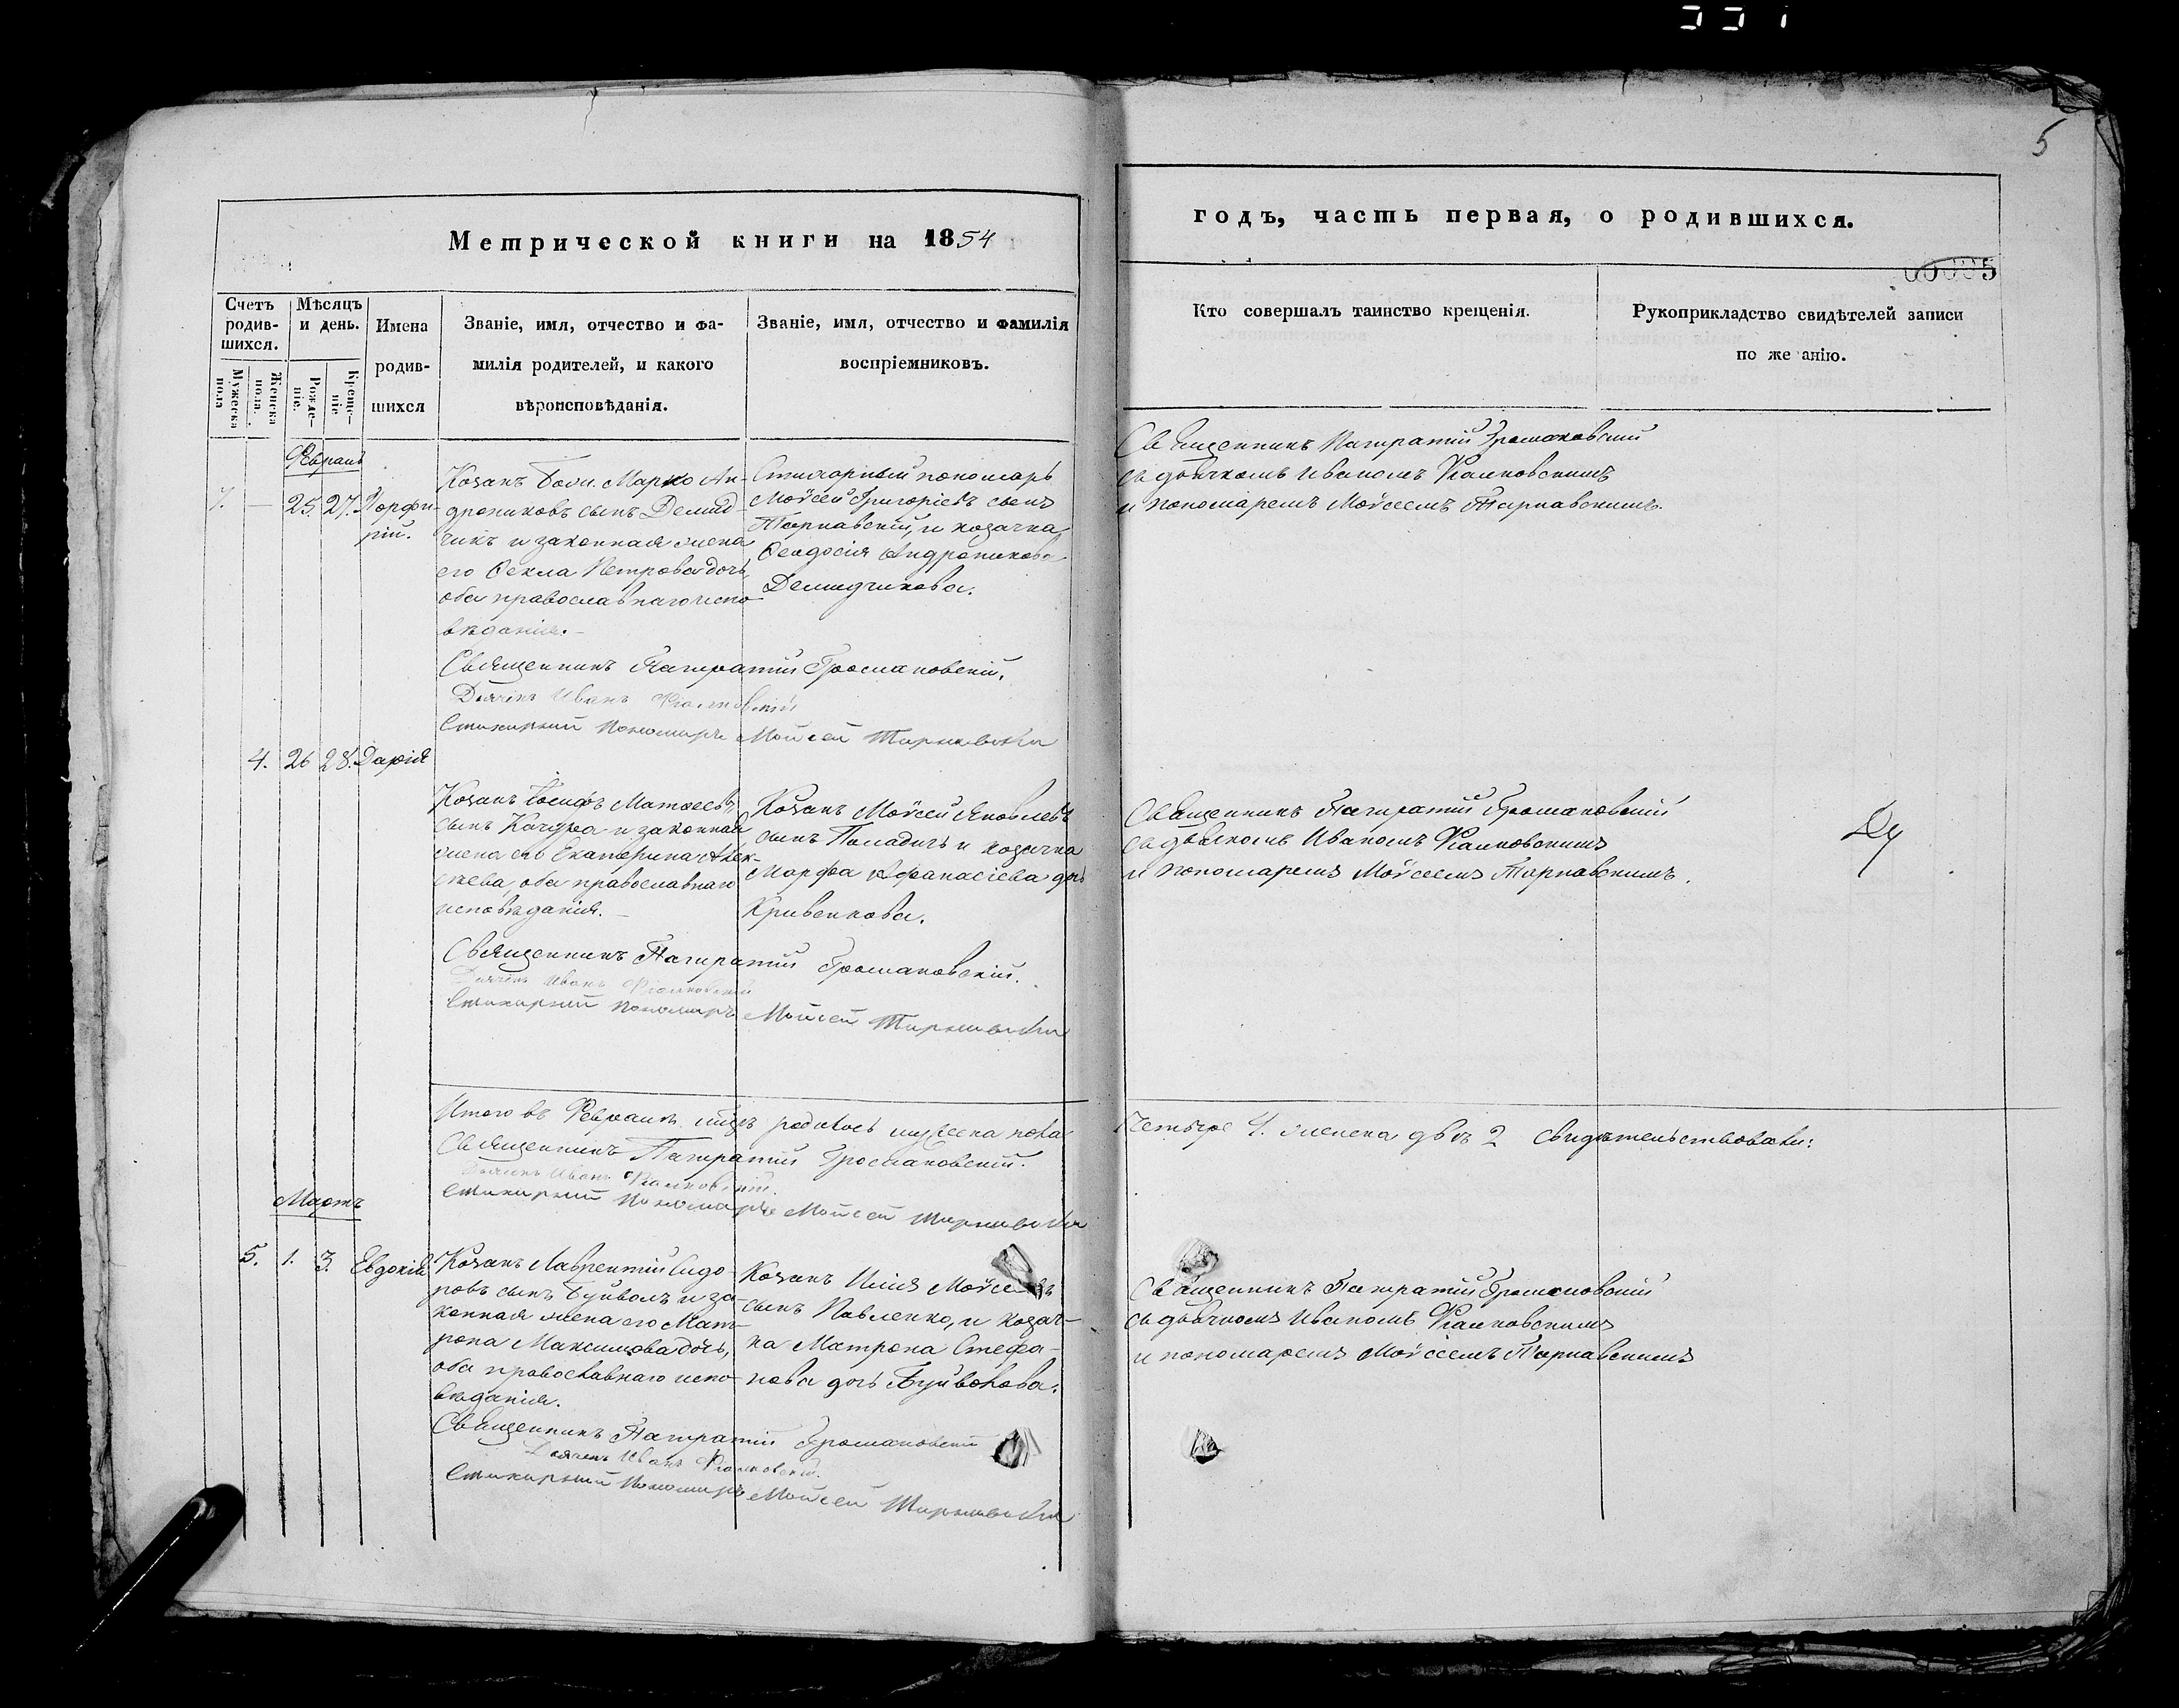 5
Метрической книги на 1854
годъ, часть первая, о родившихся.
00005
Счетъ родив-шихся.
Мужеска пола
Женска пола.
Мѣсяцъ и день.
Рожде-ніе.
Креще-ніе
Имена
родив-
шихся
Званіе, имя, отчество и фа-
милія родителей, и какого
вѣроисповѣданія.
Званіе, имя, отчество и фамилія
воспріемниковъ.
Кто совершалъ таинство крещенія.
Рукоприкладство свидѣтелей записи
по же анію.
Февраль
7. — 25. 27. Порфи-
рій.
Козакъ Марко Ан-
дрониковъ сынъ Демид-
чикъ и законная жена
его Ѳекла Петрова дочь,
оба православнаго испо-
вѣданія. –
Стихарный пономарь
Моѵсей Григоріевъ сынъ
Тарнавскій, и козачка
Ѳеодосія Андроникова
Демидчикова.
Священникъ Панкратій Громаковскій
съ дьячкомъ Иваномъ Фіалковскимъ
и пономаремъ Моѵсеемъ Тарнавскимъ.
Священникъ Панкратій Громаковскій.
Дьячекъ Иванъ Фіалковскій
Стихарный Пономарь Мойсей Тарнавскій
4. 26 28. Дарія
Козакъ Іосифъ Матѳеевъ
сынъ Качура и законная
жена его Екатерина Алек-
сѣева, оба православнаго
исповѣданія. –
Козакъ Моѵсей Яковлевъ
сынъ Паладичъ и козачка
Марфа Афанасіева дочь
Кривенкова.
Священникъ Панкратій Громаковскій
съ дьячкомъ Иваномъ Фіалковскимъ
и пономаремъ Моѵсеемъ Тарнавскимъ.
Священникъ Панкратій Громаковскій.
Дьячекъ Иванъ Фіалковскій
Стихарный Пономарь Мойсей Тарнавскій
Итого въ Февралѣ мцѣ родилось мужеска пола
четыре 4. женска двѣ 2 свидѣтельствовали:
Священникъ Панкратій Громаковскій.
Дьячекъ Иванъ Фіалковскій.
Стихарный Пономарь Мойсей Тарнавскій
Мартъ
5. 1. 3. Евдокія
Козакъ Лаврентій Сидо-
ровъ сынъ Буйволъ и за-
конная жена его Мат-
рона Максимова дочь,
оба православнаго испо-
вѣданія.
Козакъ Илія Моѵсеевъ
сынъ Павленко, и козач-
ка Матрона Стефа-
нова дочь Буйволова.
Священникъ Панкратій Громаковскій
съ дьячкомъ Иваномъ Фіалковскимъ
и пономаремъ Моѵсеемъ Тарнавскимъ
Священникъ Панкратій Громаковскій
Дьячекъ Иванъ Фіалковскій.
Стихарный Пономарь Мойсей Тарнавскій